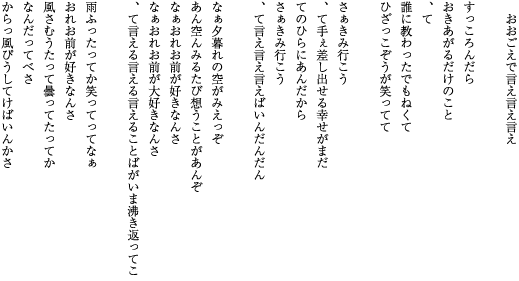 おおごえで言え言え言え
すっころんだら
おきあがるだけのこと
、て
誰に教わったでもねくて
ひざっこぞうが笑ってて
さぁきみ行こう
、て手ぇ差し出せる幸せがまだ
てのひらにあんだから
さぁきみ行こう
、て言え言え言えばいんだんだん
なぁ夕暮れの空がみえっぞ
あん空んみるたび想うことがあんぞ
なぁおれお前が好きなんさ
なぁおれお前が大好きなんさ
、て言える言える言えることばがいま沸き返ってこ
雨ふったってか笑ってってなぁ
おれお前が好きなんさ
風さむうたって曇ってたってか
なんだってべさ
からっ風ぴうしてけばいんかさ